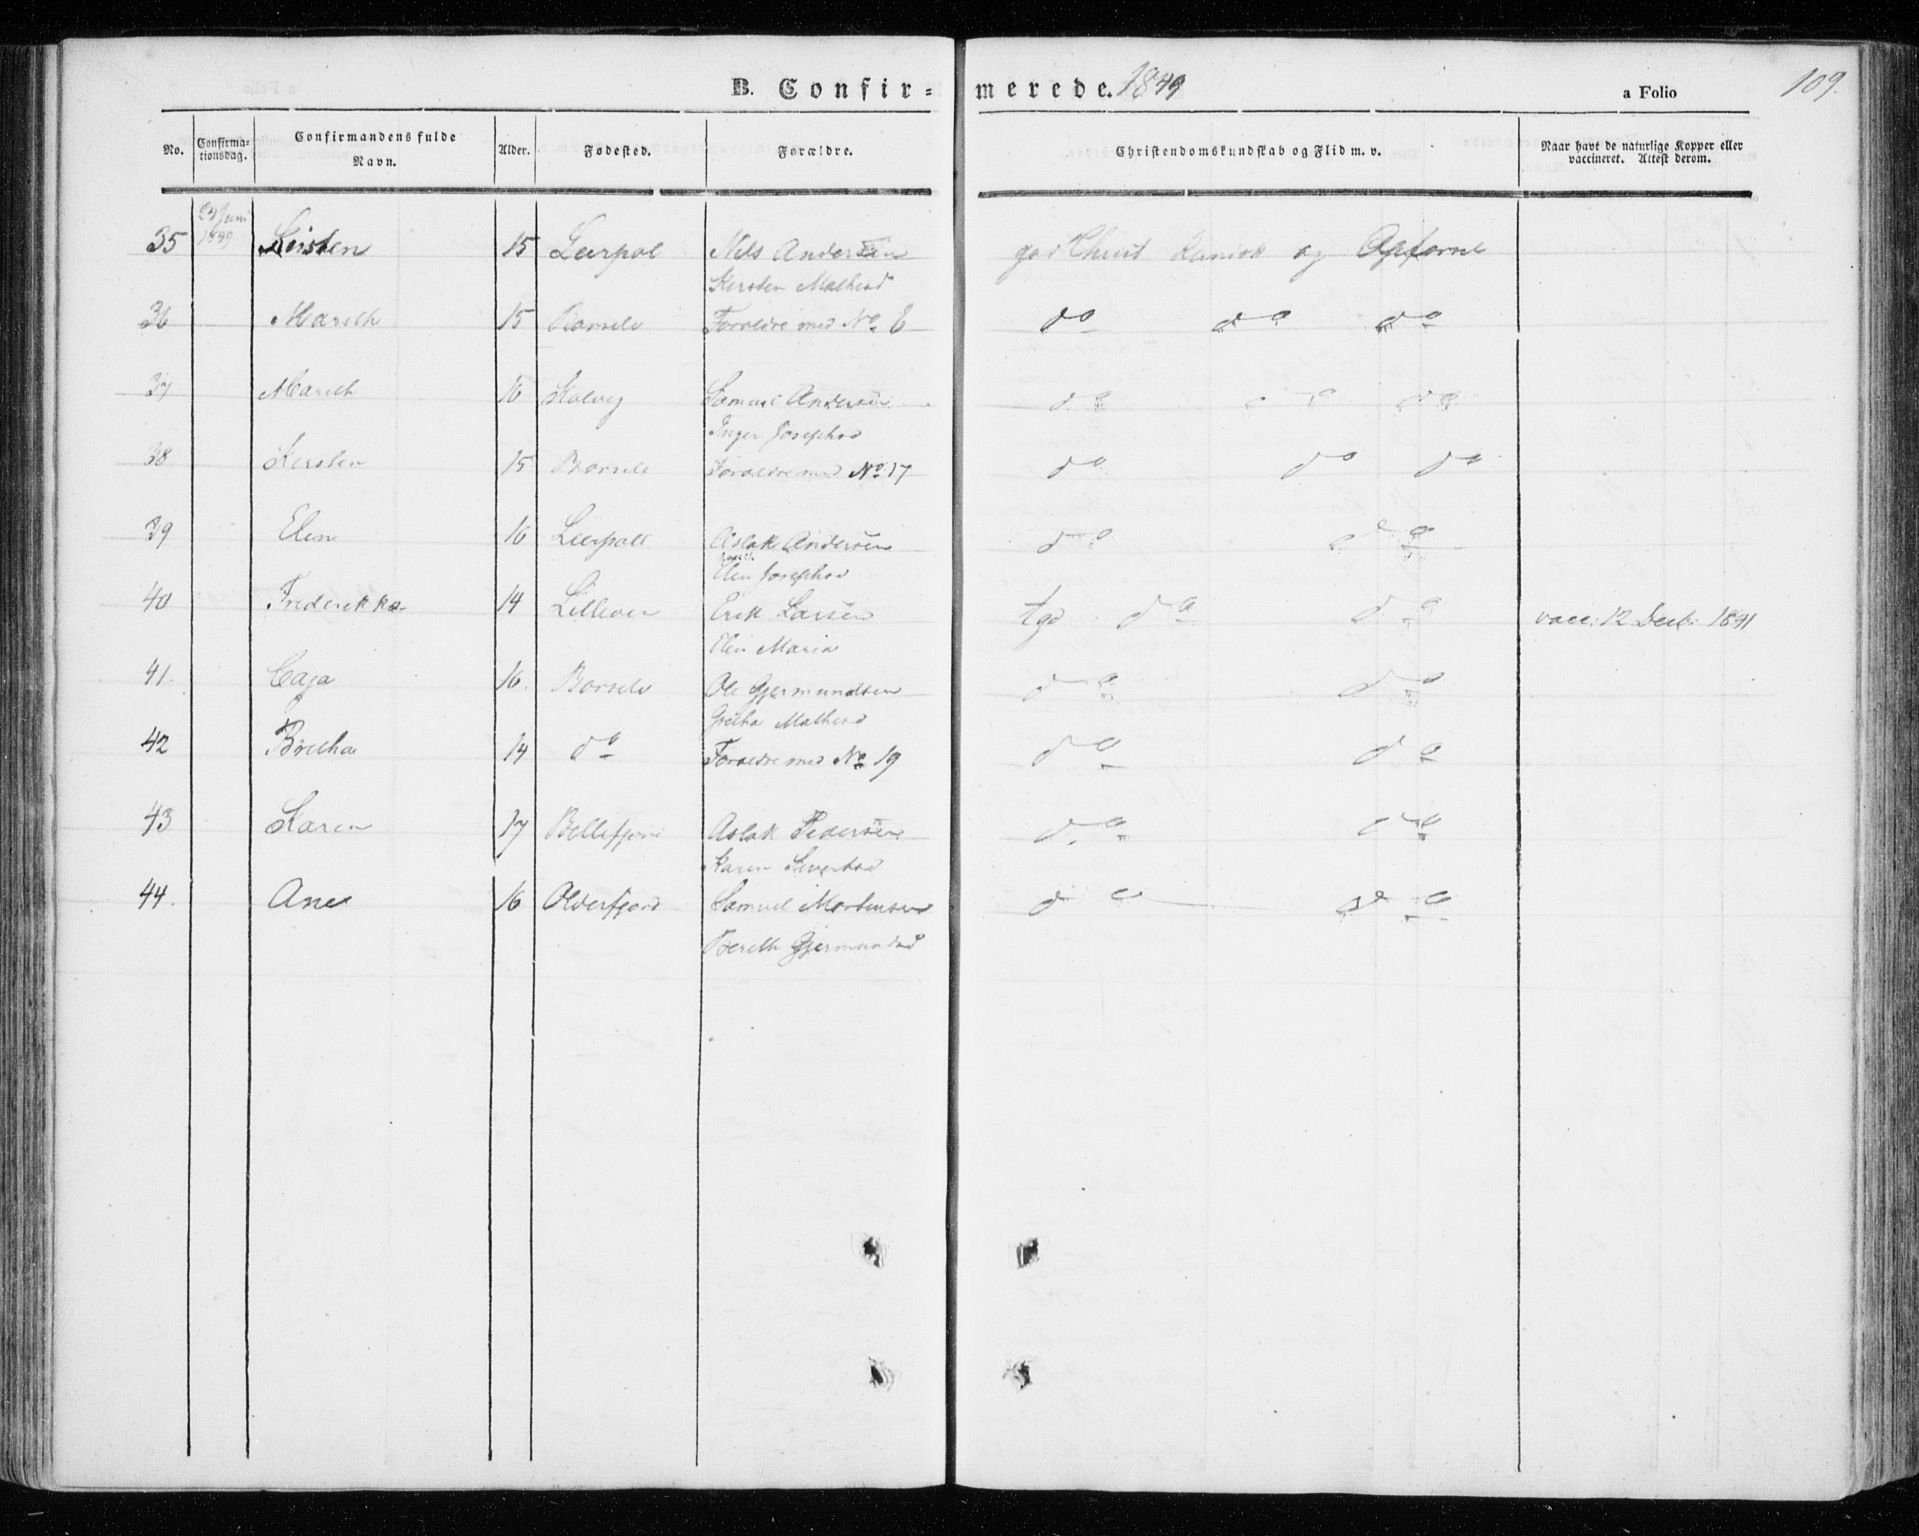 B. Confir=merede. 1849
a Folio
109.
No.
Confirma-
tionsdag.
Confirmandens fulde
Navn.
Alder.
Fødested.
Forældre.
Christendomskundskab og Flid m. v.
Naar havt de naturlige Kopper eller
vaccineret. Attest derom.
Juni
1849
35 Kirsten 15 Leerpol Nils Andersen god Christ Kundsk og Opførsel
Kirsten Mathisd
36 Marith 15 Borselv Forældre med No 6 do do do
37 Marith 16 Kolvig Samuel Andersen do do do
Inger Josephsd
38 Kirsten 15 Borselv Forældre med No 17 do do do
39 Elen 16 Leerpoll Aslak Andersen do do
Elen Josephsd
40 Frederikka 14 Erik Larsen tgd do do vacc. 12 Decb. 1841
Elen Maria
41. Caja 16. Borselv Ole Gjermundsen do do
Gretha Mathisd
42 Bretha 14 do Forældre med No 19 do do
43 Karen 17 Aslak Pedersen do do
Karen Sivertsd
44. Ane 16 Olderfjord Samuel Mortensen do do
Bereth Gjermundsd